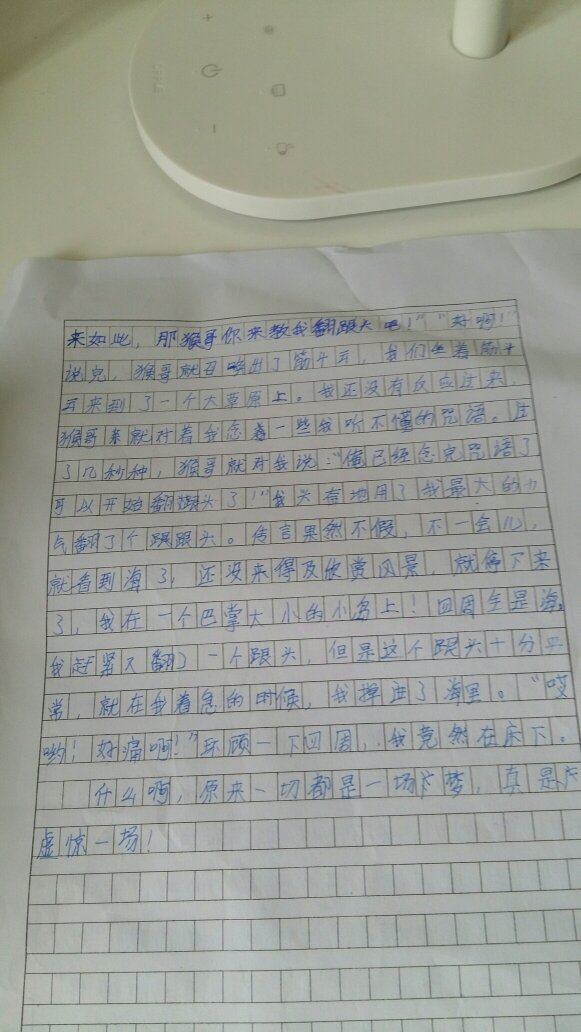 来如此，那猴哥你来教我翻跟头吧！”“好啊！”
说完，猴哥就召唤出了筋斗云，我们坐着筋斗
云来到了一个大草原上。我还没有反应过来，
猴哥来就对着我念着一些我听不懂的咒语。过
了几秒种，猴哥就对我说：“俺已经念完咒语了
可以开始翻跟头了！”我头在地用了我最大的力
气翻了个跟跟头。传言果然不假，不一会儿，
就看到海了，还没来得及欣赏风景，就停下来
了，我在一个巴掌大小的小岛上！四周全是海。
我赶紧又翻了一个跟头，但是这个跟头十分平
常，就在我着急的时候，我掉进了海里。“哎
哟！好痛啊！”环顾一下四周，我竟然在床下。
什么啊，原来一切都是一场梦，真是
虚惊一场！